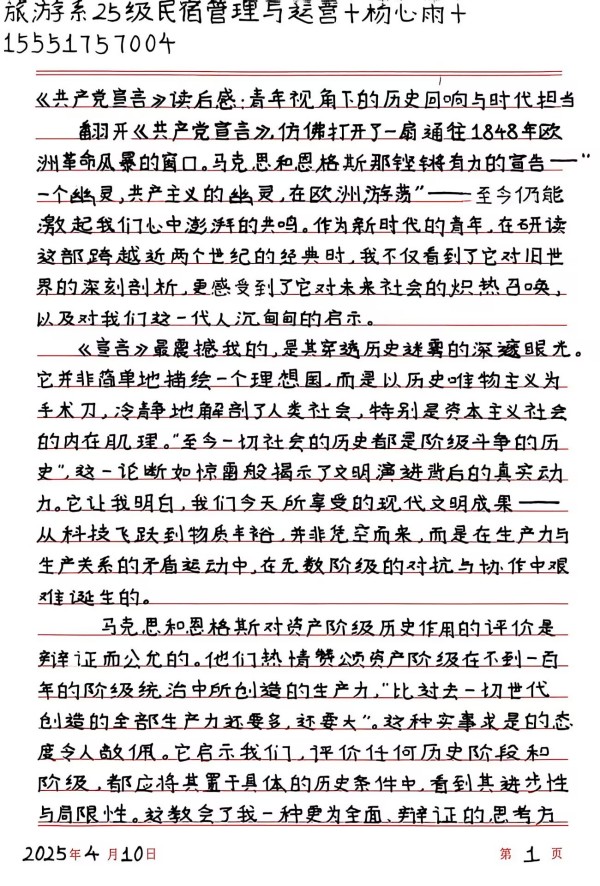 旅游系25级民宿管理与运营+杨心雨+
15551757004
《共产党宣言》读后感:青年视角下的历史回响与时代担当
翻开《共产党宣言》,仿佛打开了一扇通往1848年欧
洲革命风暴的窗口。马克思和恩格斯那铿锵有力的宣告——“
一个幽灵,共产主义的幽灵,在欧洲游荡”——至今仍能
激起我们心中澎湃的共鸣。作为新时代的青年,在研读
这部跨越近两个世纪的经典时,我不仅看到了它对旧世
界的深刻剖析,更感受到了它对未来社会的炽热召唤,
以及对我们这一代人沉甸甸的启示。
《宣言》最震撼我的,是其穿透历史迷雾的深邃眼光。
它并非简单地描绘一个理想国,而是以历史唯物主义为
手术刀,冷静地解剖了人类社会,特别是资本主义社会
的内在肌理。“至今一切社会的历史都是阶级斗争的历
史”,这一论断如惊雷般揭示了文明演进背后的真实动
力。它让我明白,我们今天所享受的现代文明成果——
从科技飞跃到物质丰裕,并非凭空而来,而是在生产力与
生产关系的矛盾运动中,在无数阶级的对抗与协作中艰
难诞生的。
马克思和恩格斯对资产阶级历史作用的评价是
辩证而公允的。他们热情赞颂资产阶级在不到一百
年的阶级统治中所创造的生产力,“比过去一切世代
创造的全部生产力还要多,还要大”。这种实事求是的态
度令人敬佩。它启示我们,评价任何历史阶段和
阶级,都应将其置于具体的历史条件中,看到其进步性
与局限性。这教会了我一种更为全面、辩证的思考方
2025年4月10日 第1页